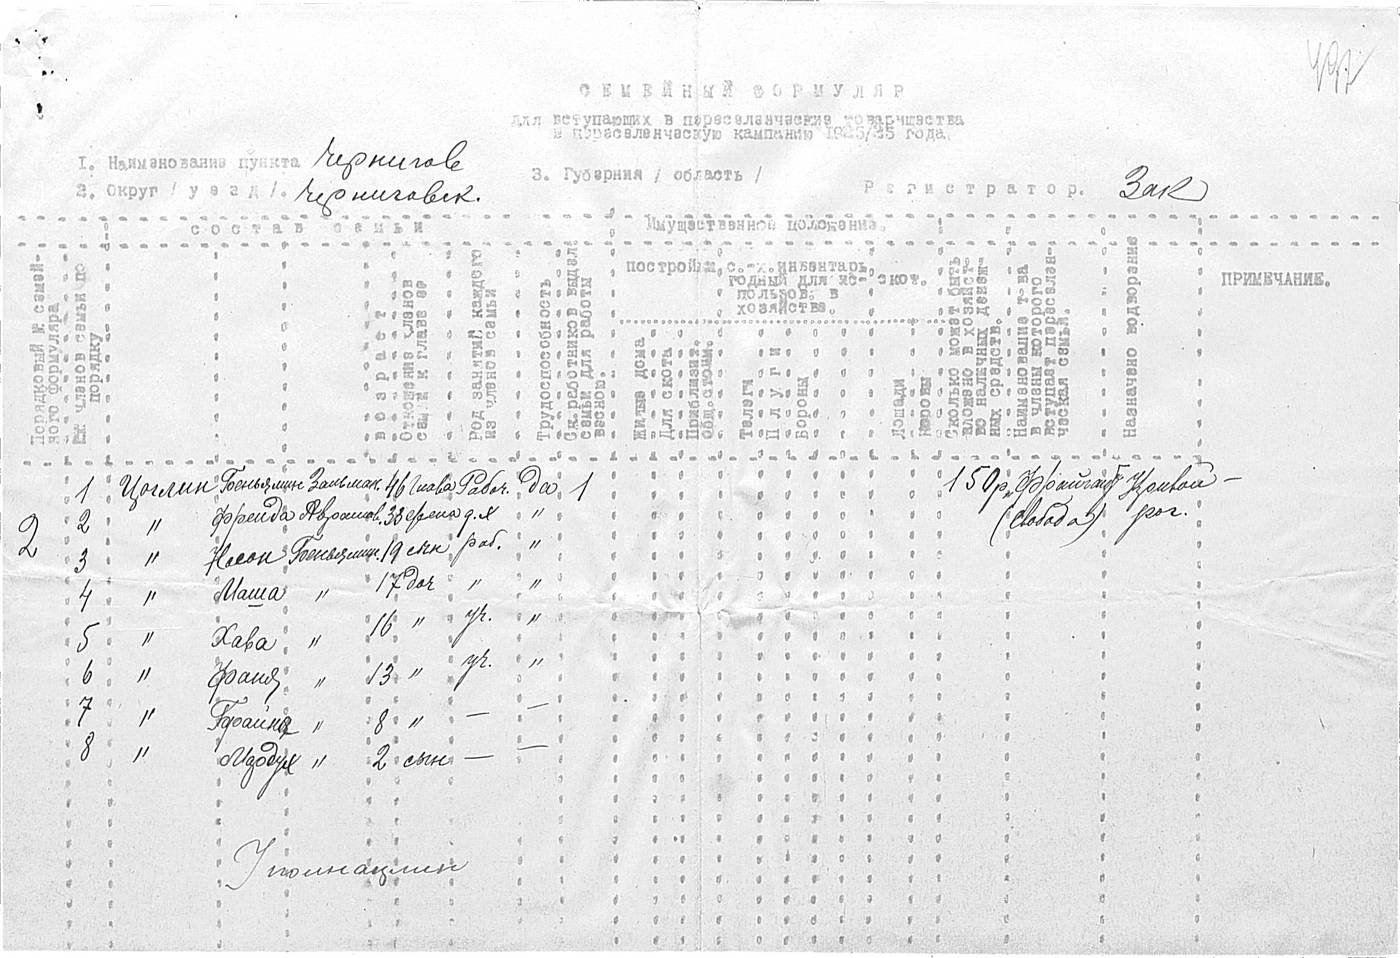 497
СЕМЕЙНЫЙ ФОРМУЛЯР
для вступающих в переселенческие товарищества
в переселенческую кампанию 1925/25 года.
1. Наименование пункта Чернигов
2. Округ / уезд /. Черниговск.
3. Губерния / область /
Регистратор. Зак
состав семьи
Имущественное положение.
Порядковый № семей-
ного формуляра
№№ членов семьи по
порядку
возраст
Отношение членов
семьи к главе ее
Род занятий каждого
из членов семьи
Трудоспособность
Ск. работников выдел.
семьи для работы
весною.
постройки
с.-х. инвентарь,
годный для ис-
пользов. в
хозяйстве.
скот.
Жилые дома
Для скота
Приблизит.
общ. стоим.
Телеги
Плуги
Бороны
Лошади
Коровы
Сколько может быть
вложено в хозяйст-
во наличных денеж-
ных средств.
Наименование т-ва
в члены которого
вступает переселен-
ческая семья.
Назначено водворение
ПРИМЕЧАНИЕ.
1 Цоглин Беньямин Зальман. 46 глава Рабоч. да 1 150 р. „Фрайгайт Кривой –
2 " Фрейда Абрамов. 38 жена д.х " (свобода) рог.
2
3 " Носон Беньямин. 19 сын раб. "
4 " Маша " 17 доч " "
5 " Хава " 16 " уч. "
6 " Фаня " 13 " уч. "
7 " Брайна " 8 " — —
8 " " 2 сын — —